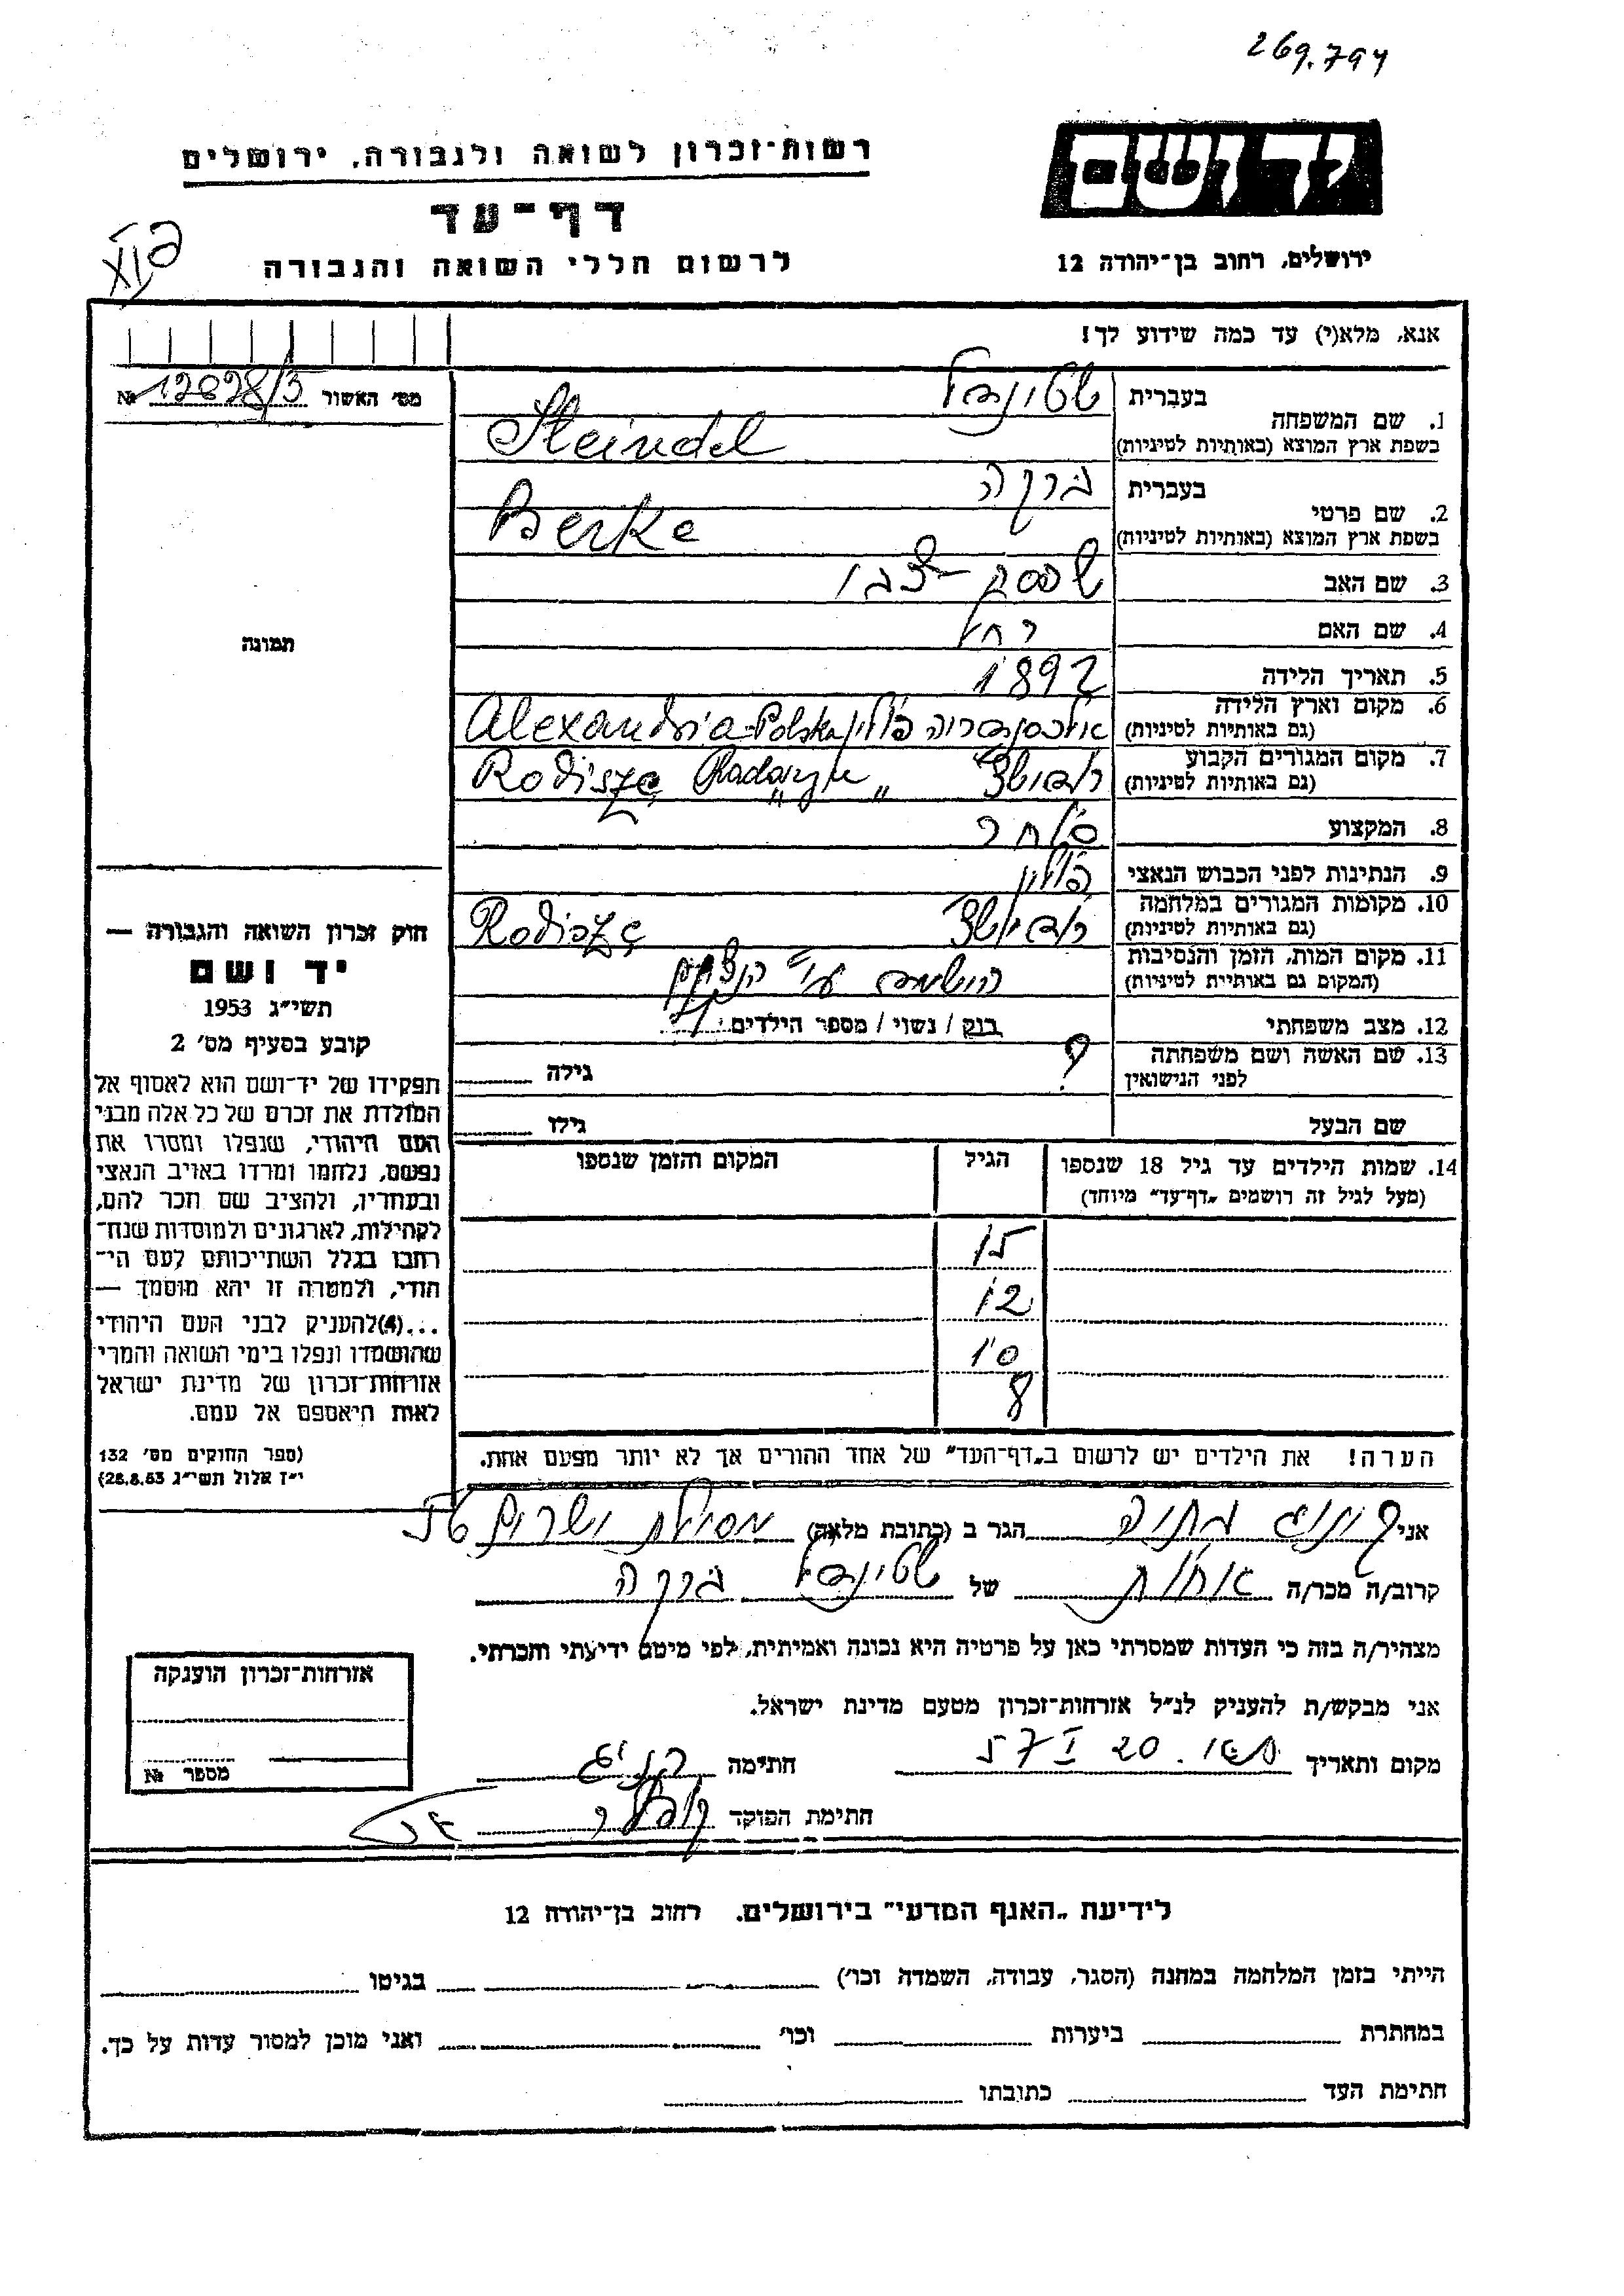 269.794
רשות-זכרון לשואה ולגבורה, ירושלים
יד ושם
דף-עד
לרשום חללי השואה והגבורה
ירושלים, רחוב בן-יהודה 12
אנא, מלא(י) עד כמה שידוע לך!
מס' האשור 12828/5 №
1. שם המשפחה
בעברית שטיינדל
בשפת ארץ המוצא (באותיות לטיניות) Steindel
2. שם פרטי
בעברית ברקה
בשפת ארץ המוצא (באותיות לטיניות) Berke
3. שם האב
4. שם האם רחל
5. תאריך הלידה 1892
6. מקום וארץ הלידה אלכסנדריה פולין Alexandria-Polska
(גם באותיות לטיניות)
7. מקום המגורים הקבוע
(גם באותיות לטיניות)
8. המקצוע סוחר
9. הנתינות לפני הכבוש הנאצי פולין
10. מקומות המגורים במלחמה
(גם באותיות לטיניות)
11. מקום המות, הזמן והנסיבות
(המקום גם באותיות לטיניות)
הושמד ע"י הנאצים
12. מצב משפחתי רוק / נשוי / מספר הילדים 4
13. שם האשה ושם משפחתה ? גילה
לפני הנישואין
שם הבעל גילו
14. שמות הילדים עד גיל 18 שנספו הגיל המקום והזמן שנספו
(מעל לגיל זה רושמים "דף-עד" מיוחד)
15
12
10
8
הערה! את הילדים יש לרשום ב"דף-העד" של אחד ההורים אך לא יותר מפעם אחת.
תמונה
חוק זכרון השואה והגבורה —
יד ושם
תשי"ג 1953
קובע בסעיף מס' 2
תפקידו של יד-ושם הוא לאסוף אל
המולדת את זכרם של כל אלה מבני
העם היהודי, שנפלו ומסרו את
נפשם, נלחמו ומרדו באויב הנאצי
ובעוזריו, ולהציב שם וזכר להם,
לקהילות, לארגונים ולמוסדות שנח-
רבו בגלל השתייכותם לעם הי-
הודי, ולמטרה זו יהא מוסמך —
...(4)להעניק לבני העם היהודי
שהושמדו ונפלו בימי השואה והמרי
אזרחות-זכרון של מדינת ישראל
לאות היאספם אל עמם.
(ספר החוקים מס' 132
י"ז אלול תשי"ג 28.8.53)
אני הגר ב (כתובת מלאה)
קרוב/ה מכר/ה אחות של שטיינדל ברקה
מצהיר/ה בזה כי העדות שמסרתי כאן על פרטיה היא נכונה ואמיתית, לפי מיטב ידיעתי והכרתי.
אני מבקש/ת להעניק לנ"ל אזרחות-זכרון מטעם מדינת ישראל.
מקום ותאריך 20 I 57 חתימה
חתימת הפוקד
אזרחות-זכרון הוענקה
מספר №
לידיעת "האגף המדעי" בירושלים. רחוב בן-יהודה 12
הייתי בזמן המלחמה במחנה (הסגר, עבודה, השמדה וכו') בגיטו
במחתרת ביערות וכו' ואני מוכן למסור עדות על כך.
חתימת העד כתובתו